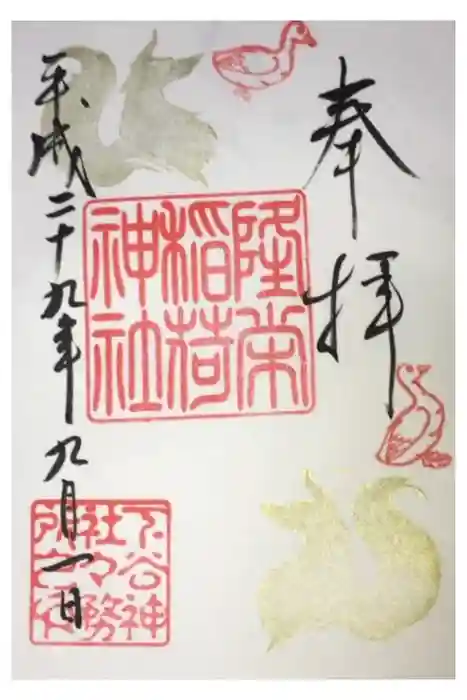 奉拝
隆栄稲荷神社
平成二十九年九月一日
下谷神
社々務
所之印